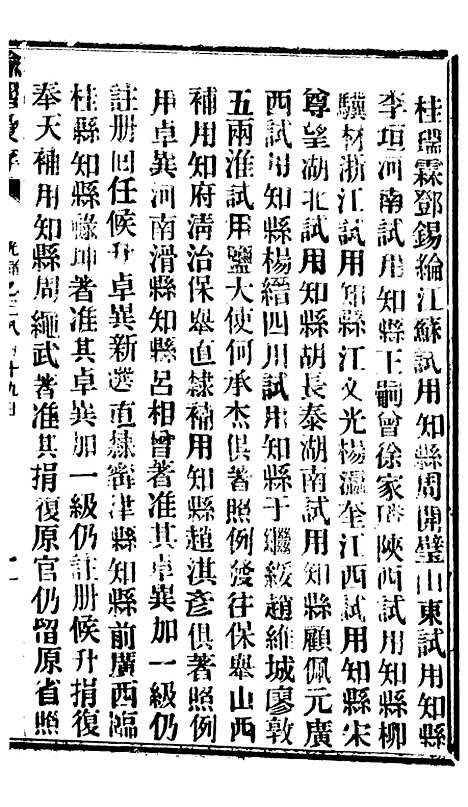 桂瑞霖鄧錫綸江蘇試用知縣周開璧山東試用知縣
李垣河南試用知縣王嗣曾徐家璠陝西試用知縣柳
驥材浙江試用知縣江文光楊瀛奎江西試用知縣宋
尊望湖北試用知縣胡長泰湖南試用知縣顧佩元廣
西試用知縣楊縉四川試用知縣于繼緩趙維城廖敦
五兩淮試用鹽大使何承杰俱著照例發往保舉山西
補用知府清治保舉直隸補用知縣趙淇彥俱著照例
用卓異河南滑縣知縣呂相曾著准其卓異加一級仍
註册回任候升卓異新選直隸寧津縣知縣前廣西臨
桂縣知縣祿坤著准其卓異加一級仍註册候升捐復
奉天補用知縣周繩武著准其捐復原官仍留原省照
諭摺彙存